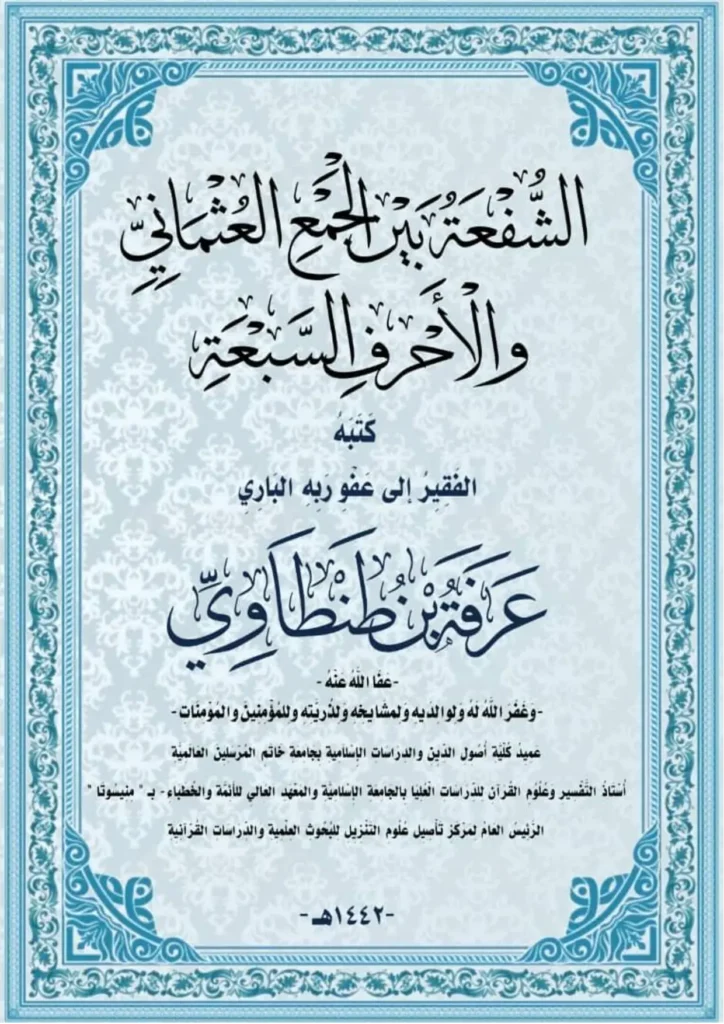 الشُّفْعَةُ بَيْنَ الْجَمْعِ العُثْمَانِيِّ
وَالْأَحْرُفِ السَّبْعَةِ
كَتَبَهُ
الفَقِيرُ إلى عَفْوِ رَبِهِ البَارِي
عَرَفَةُ بْنُ طَنْطَاوِيِّ
-عَفَا اللهُ عَنْهُ-
-وغَفَرَ اللهُ لَهُ ولوالِديهِ ولمشايخِهِ ولذُريَّتِهِ وللمُؤْمِنِينَ والمُؤمِنَات-
عَميدُ كُلِّيَّةِ أُصُولِ الدِّينِ والدِراسَاتِ الإسْلاميةِ بجامعةِ خَاتَمِ المُرْسَلِينَ العَالميَّة
أُسْتَاذُ التَّفْسِيرِ وعُلُومِ القُرآنِ لِلدِّرَاسَاتِ الْعُليَا بالجَامعَةِ الإسْلاميَّة والمَعْهَد العَالي للأئمَّة والخُطبَاء- بـ " مِنِيسُوتا "
الرَّئيسُ العَامُ لمركَز تَأصِيل عُلُومِ التَنْزِيلِ للبُحُوثِ العِلْمِيةِ والدِرَاسَاتِ القُرْآنِية
-١٤٤٢هـ-